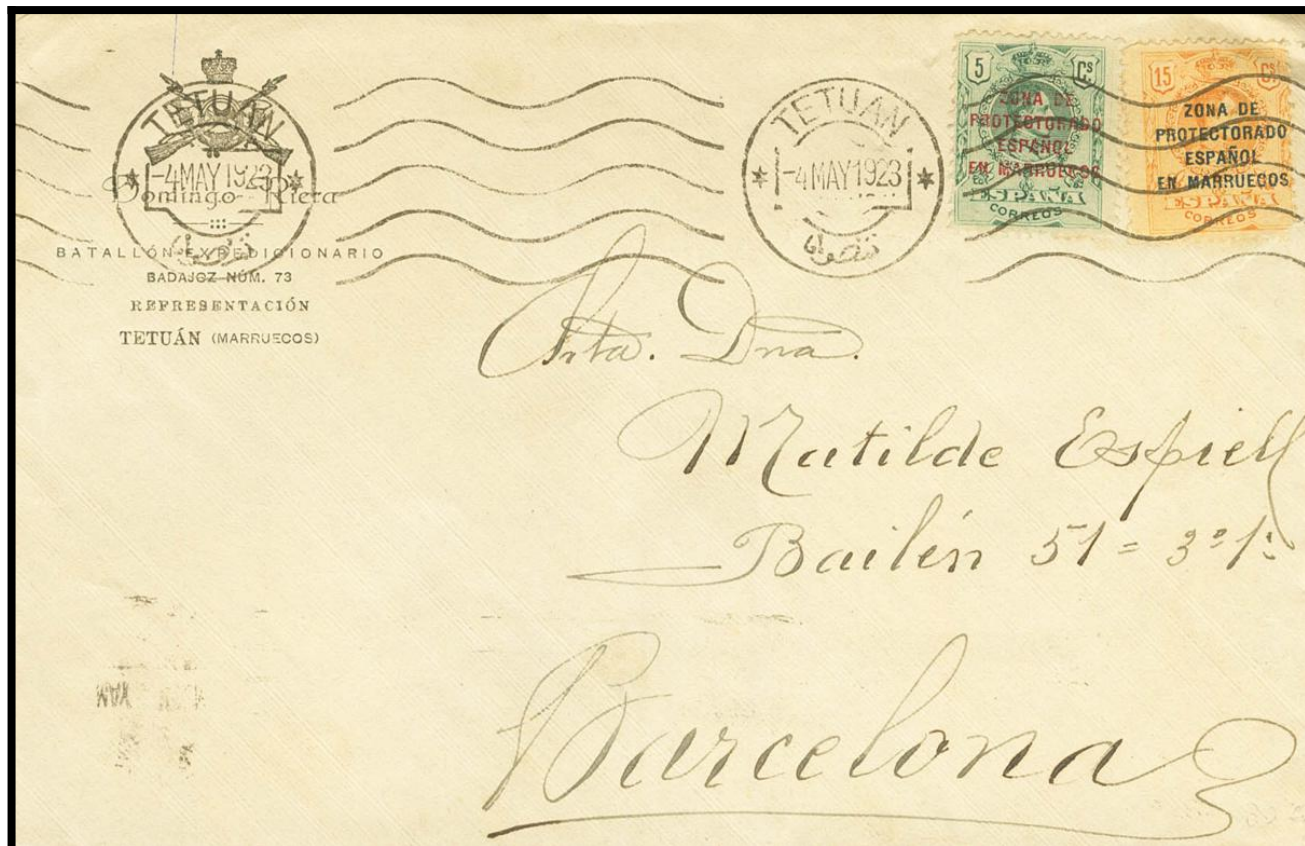 TETUAN
-4 MAY 1923
تطوان
Domingo Riera
BATALLÓN EXPEDICIONARIO
BADAJOZ NÚM. 73
REPRESENTACIÓN
TETUÁN (MARRUECOS)
TETUAN
-4 MAY 1923
تطوان
5 Cs
ZONA DE
PROTECTORADO
ESPAÑOL
EN MARRUECOS
ESPAÑA
CORREOS
15 Cs
ZONA DE
PROTECTORADO
ESPAÑOL
EN MARRUECOS
ESPAÑA
CORREOS
Srta. Dna.
Matilde Espiell
Bailén 51 = 3º 1ª
Barcelona